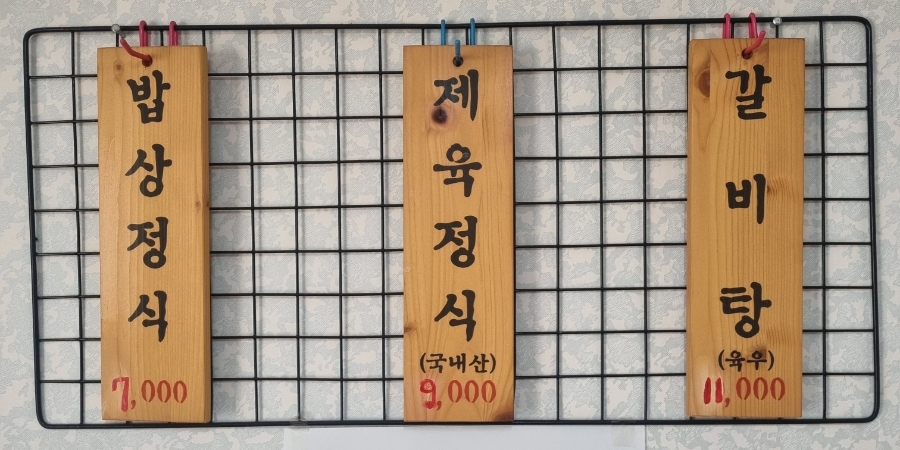 밥상정식
7,000
제육정식
(국내산)
9,000
갈비탕
(육우)
11,000